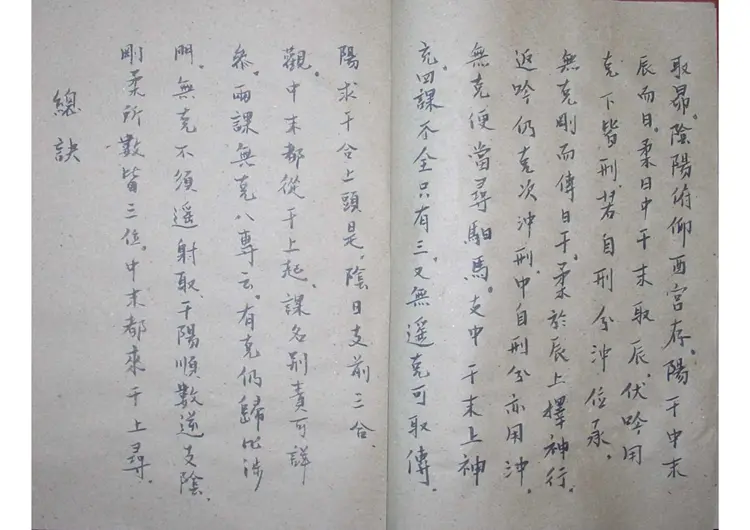 取昴。陰陽俯仰酉宮存。陽干中末
辰而日。柔日中干末取辰。伏吟用
克下皆刑。若自刑兮沖位承。
無克剛而傳日干。柔於辰上擇神行。
返吟仍克次沖刑。中自刑兮亦用沖。
無克便當尋馹馬。支中干末上神
充。四課不全只有三。又無遥克可取傳。
陽求干合上頭是。陰日支前三合
觀。中末都從干上起。課名别責可詳
參。兩課無克八專云。有克仍歸比涉
門。無克不須遥射取。干陽順數逆支陰。
剛柔所數皆三位。中末都來干上尋。
總訣